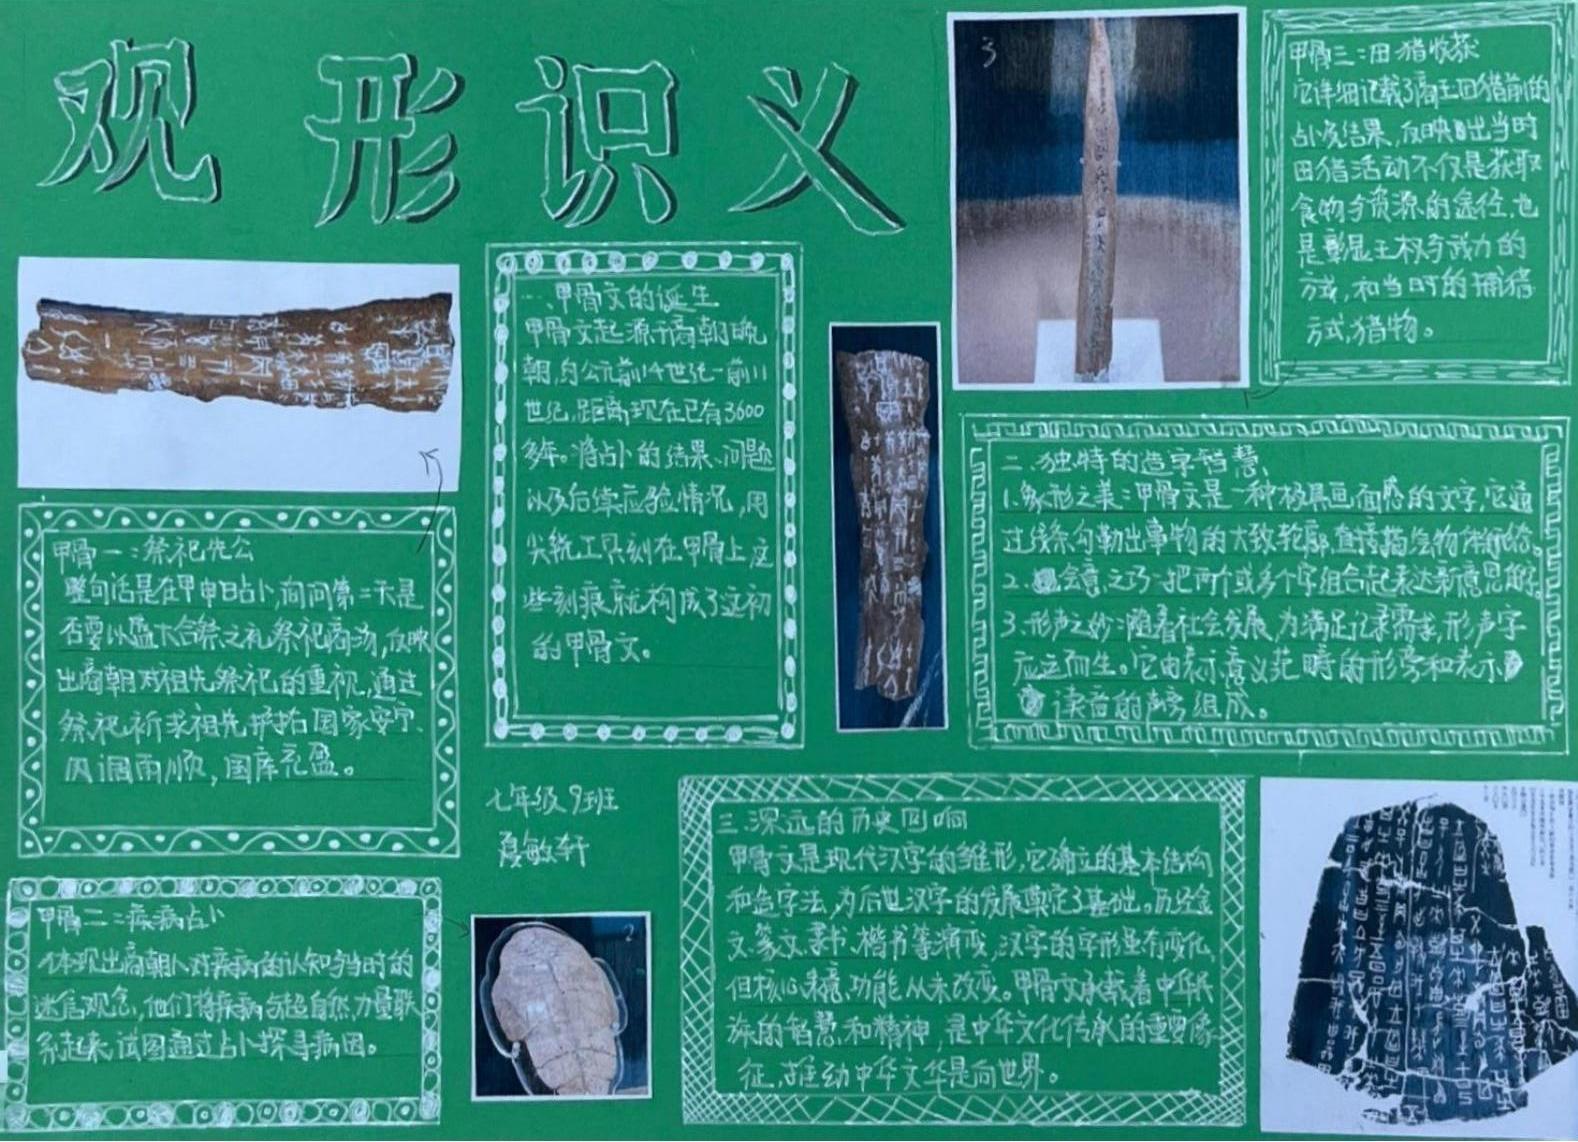 观形识义
一、甲骨文的诞生
甲骨文起源于商朝晚
朝,约公元前14世纪-前11
世纪,距离现在已有3600
多年。将占卜的结果、问题
以及后续应验情况,用
尖锐工具刻在甲骨上这
些刻痕就构成了这初
的甲骨文。
甲骨一:祭祀先公
整句话是在甲申日占卜,询问第二天是
否要以盛大合祭之礼祭祀商汤,反映
出商朝对祖先祭祀的重视,通过
祭祀祈求祖先护佑国家安宁、
风调雨顺,国库充盈。
甲骨二:疾病占卜
体现出商朝人对疾病的认知与当时的
迷信观念,他们将疾病与超自然力量联
系起来,试图通过占卜探寻病因。
3
甲骨三:田猎收获
它详细记载了商王田猎前的
占卜及结果,反映出当时
田猎活动不仅是获取
食物与资源的途径,也
是彰显王权与武力的
方式,和当时的捕猎
方式,猎物。
二、独特的造字智慧、
1.象形之美:甲骨文是一种极具画面感的文字,它通
过线条勾勒出事物的大致轮廓,直接描绘物体
2.会意之巧-把两个或多个字组合起表达新意思的字。
3.形声之妙:随着社会发展,为满足记录需求,形声字
应运而生。它由表示意义范畴的形旁和表示
读音的声旁组成。
七年级9班
夏敏轩
2
三.深远的历史回响
甲骨文是现代汉字的雏形,它确立的基本结构
和造字法,为后世汉字的发展奠定了基础。历经金
文、篆文、隶书、楷书等演变,汉字的字形虽有变化,
但核心表意、功能从未改变。甲骨文承载着中华民
族的智慧和精神,是中华文化传承的重要象
征,推动中华文华是向世界。